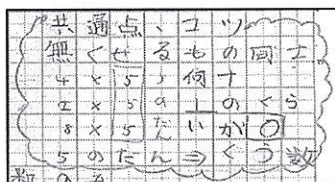 共通点、コツ
無くせるもの同士
4×5→何十
2×5のーのくら
8×5だんいが〇
5のだん⇒ぐう数